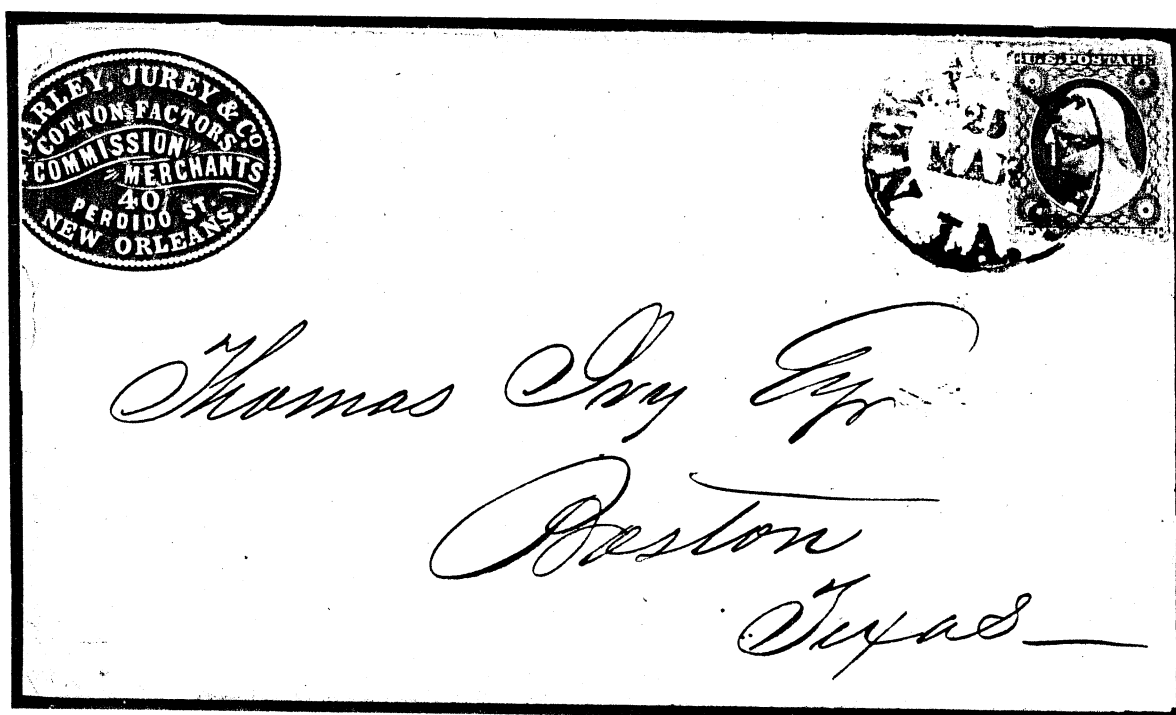 JUREY & Co
COTTON FACTORS
COMMISSION
MERCHANTS
40
PERDIDO ST.
NEW ORLEANS.
25
LA.
U.S. POSTAGE
Thomas Ivy Esqr
Boston
Texas